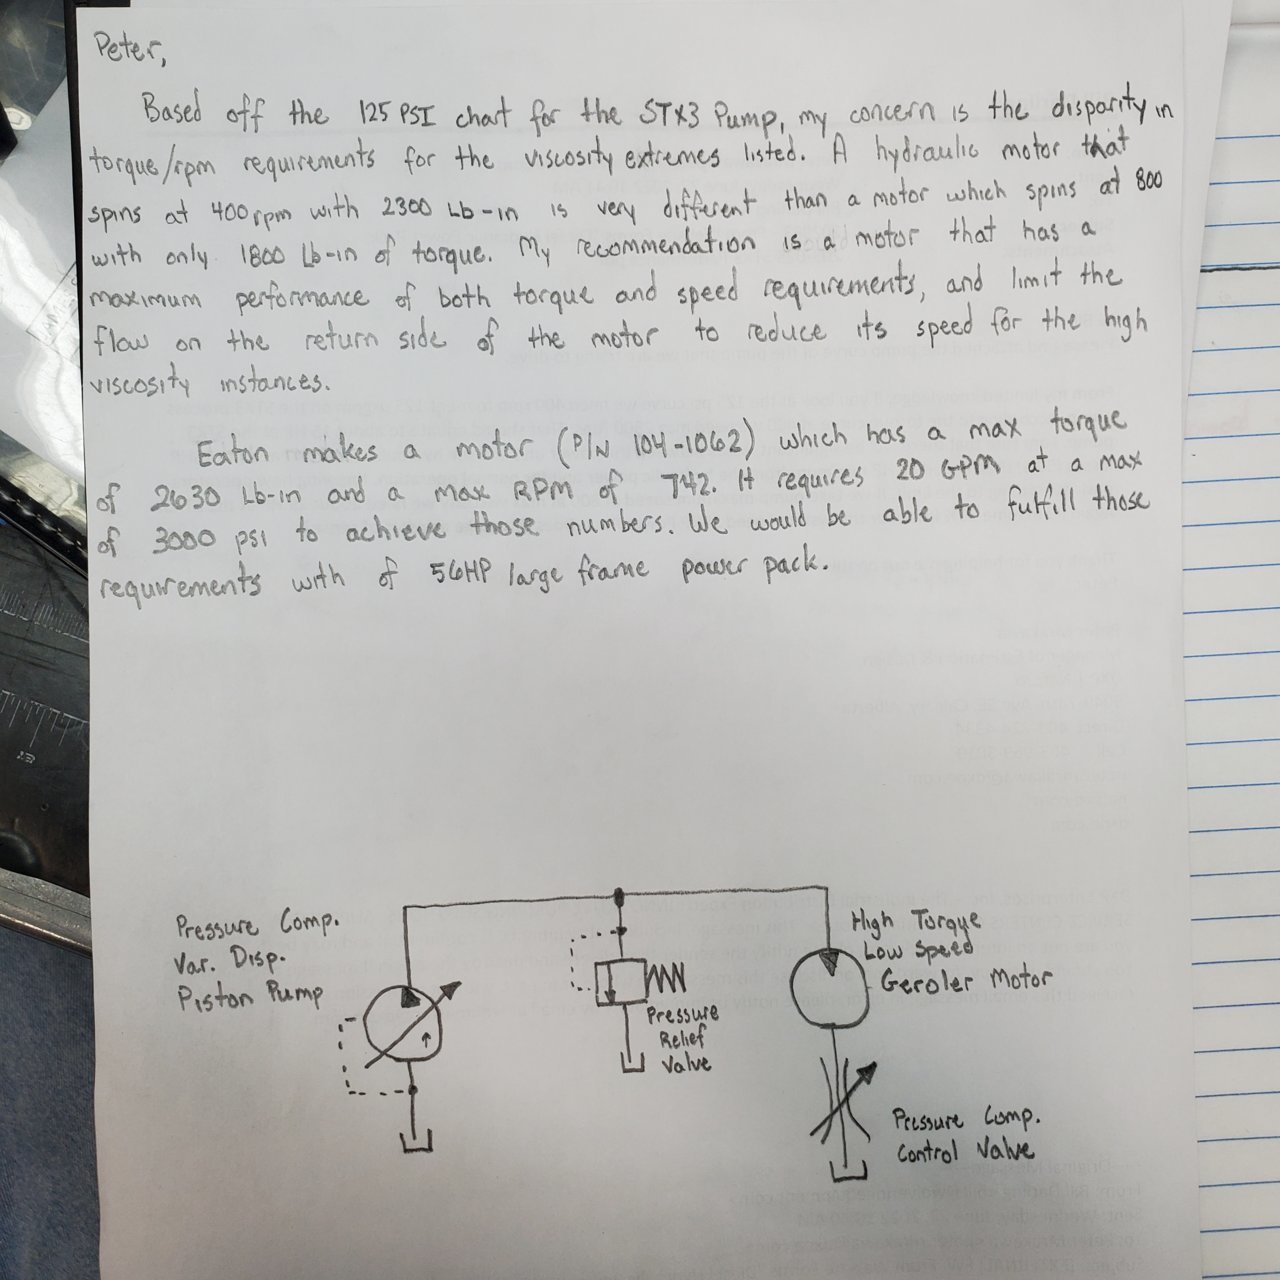 Peter,
Based off the 125 PSI chart for the STX3 Pump, my concern is the disparity in
torque/rpm requirements for the viscosity extremes listed. A hydraulic motor that
spins at 400rpm with 2300 Lb-in is very different than a motor which spins at 800
with only 1800 Lb-in of torque. My recommendation is a motor that has a
maximum performance of both torque and speed requirements, and limit the
flow on the return side of the motor to reduce its speed for the high
viscosity instances.
Eaton makes a motor (P/N 104-1062) which has a max torque
of 2630 Lb-in and a max RPM of 742. It requires 20 GPM at a max
of 3000 psi to achieve those numbers. We would be able to fulfill those
requirements with of 56HP large frame power pack.
Pressure Comp.
Var. Disp.
Piston Pump
Pressure
Relief
Valve
High Torque
Low Speed
Geroler Motor
Pressure Comp.
Control Valve